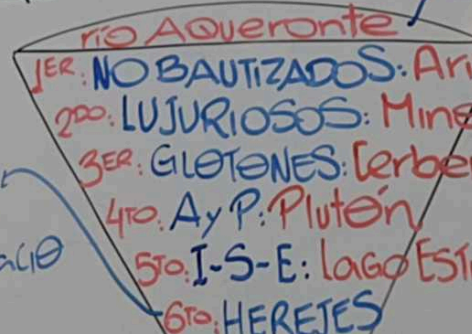 río AQUERONTE
1ER: NO BAUTIZADOS: Ari
2DO: LUJURIOSOS: Mino
3ER: GLOTONES: Cerbe
4TO: A y P: Plutón
5TO: I-S-E: LAGO EST
6TO: HEREJES